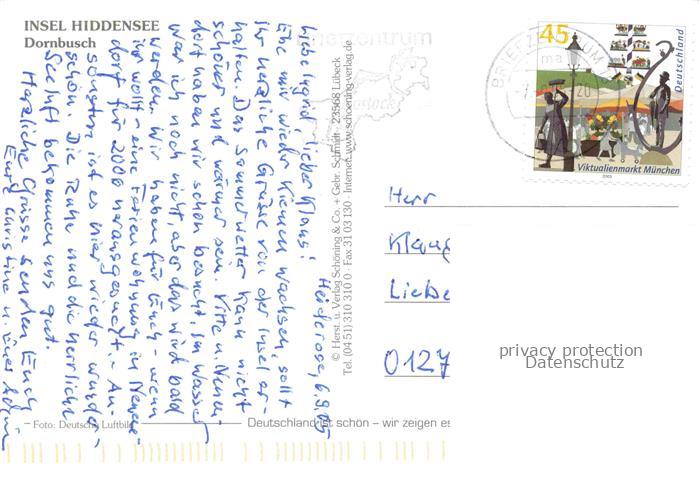 INSEL HIDDENSEE
Dornbusch
Heiderose, 6.9.05
Liebe Ingrid! Lieber Klaus!
Ehe mir wieder Kiemen wachsen, sollt
Ihr herzliche Grüsse von der Insel er-
halten. Das Sommerwetter kann nicht
schöner und wärmer sein. Vitte u. Neuen-
dorf haben wir schon besucht. Im Wasser
war ich noch nicht, aber das wird bald
werden. Wir haben für Euch – wenn
ihr wollt – eine Ferienwohnung in Neuen-
dorf für 2006 herausgesucht. An-
sonsten ist es hier wieder wunder-
schön. Die Ruhe und die herrliche
Seeluft bekommen uns gut.
Herzliche Grüsse senden Euch
Eure Christine u.
Foto: Deutsche Luftbild
Deutschland ist schön – wir zeigen es
© Herst. u. Verlag Schöning & Co. + Gebr. Schmidt · 23568 Lübeck
Tel. (04 51) 310 310 0 · Fax 31 03 130 · Internet: www.schoening-verlag.de
BRIEFZENTRUM
45
Deutschland
Viktualienmarkt München
2003
Herr
Klaus
Liebe
0127
privacy protection
Datenschutz